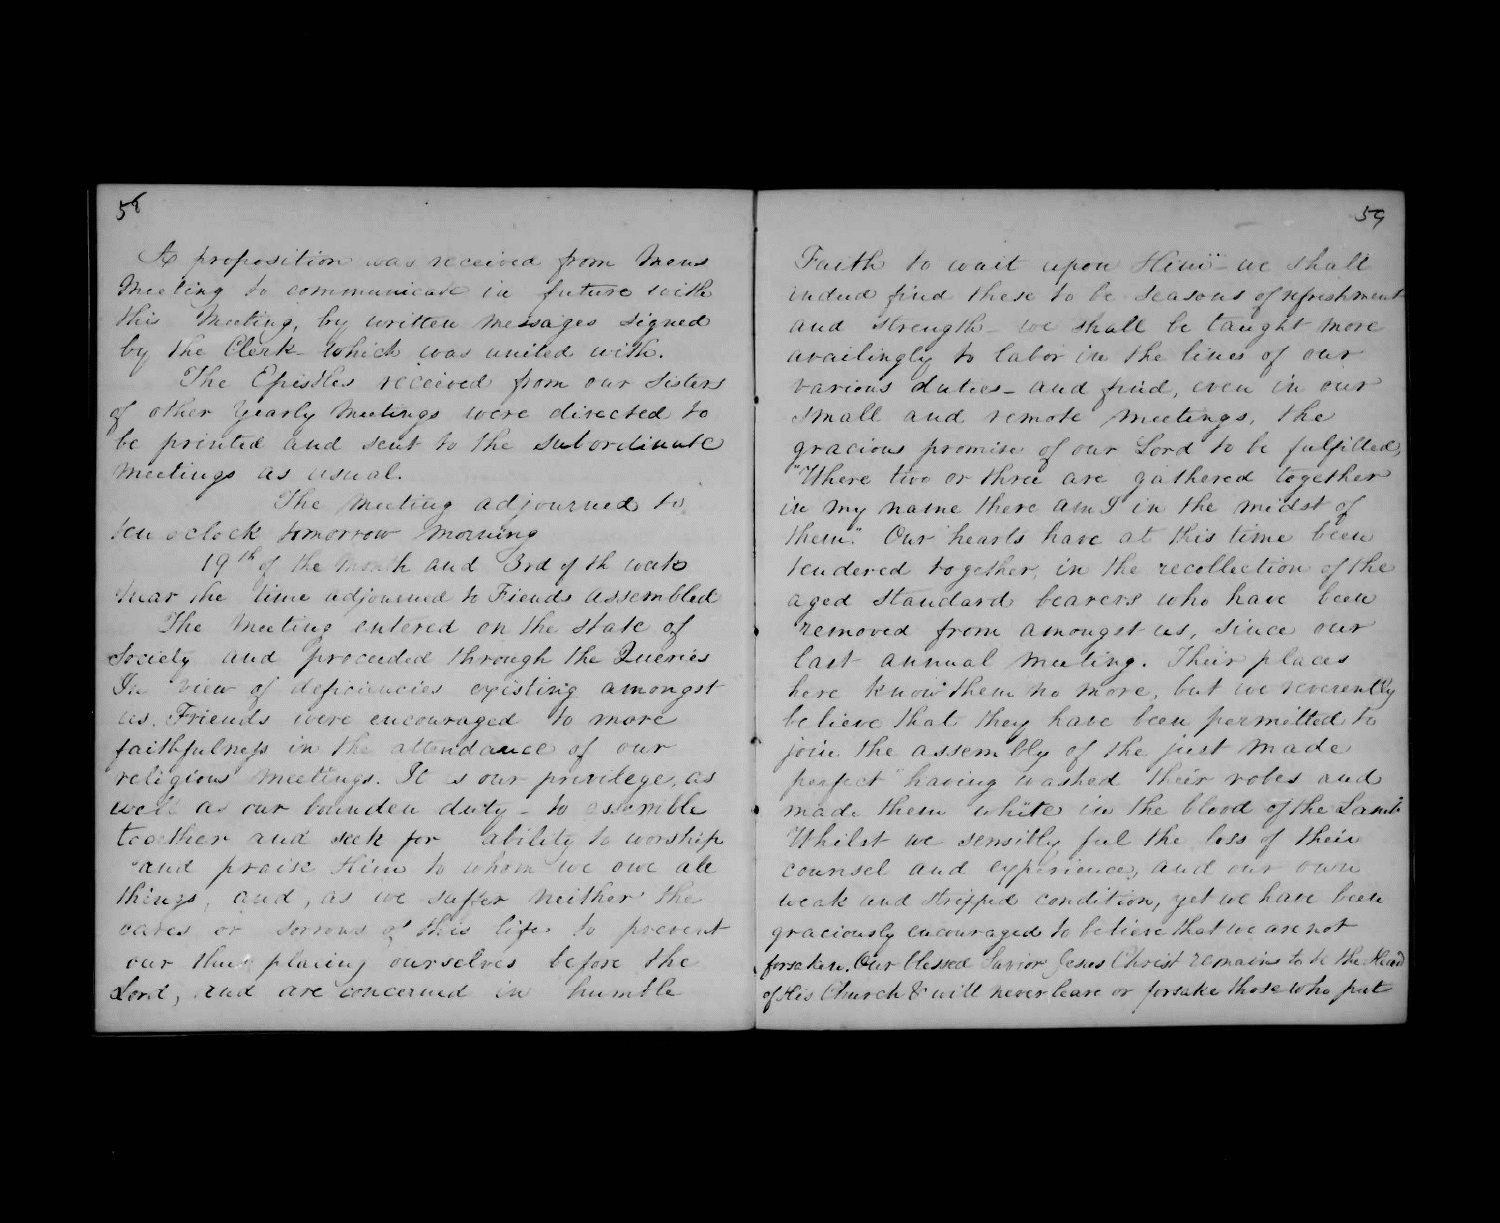 58
A proposition was received from Mens
Meeting to communicate in future with
this Meeting, by written Messages signed
by the Clerk - Which was united with.
The Epistles received from our Sisters
of other Yearly Meetings were directed to
be printed and sent to the Subordinate
Meetings as usual.
The Meeting adjourned to
ten oclock tomorrow Morning
19th of the Month and 3rd of th week
Near the time adjourned to Fiends assembled
The Meeting entered on the State of
Society and proceeded through the Queries
In view of deficiencies existing amongst
us. Friends were encouraged to more
faithfulness in the attendance of our
religious Meetings. It is our privilege, as
well as our bounden duty - to assemble
together and seek for ability to worship
and praise Him to whom we owe all
things, and, as we suffer neither the
cares or sorrows of this life to prevent
our thus placing ourselves before the
Lord, and are concerned in humble
59
Faith to wait upon Him - we shall
indeed find these to be Seasons of refreshment
and strength - we shall be taught more
availingly to labor in the lines of our
various duties - and find, even in our
small and remote Meetings, the
gracious promise of our Lord to be fulfilled,
"Where two or three are gathered together
in my name there am I in the midst of
them." Our hearts have at this time been
tendered together, in the recollection of the
aged standard bearers who have been
removed from amongst us, since our
last annual Meeting. Their places
here know them no more, but we reverently
believe that they have been permitted to
join the assembly of the just made
perfect" having washed their robes and
made them white in the blood of the Lamb
Whilst we sensibly feel the loss of their
counsel and experience, and our own
weak and stripped condition, yet we have been
graciously encouraged to believe that we are not
forsaken. Our blessed Savior Jesus Christ remains to be the Head
of His Church & will never leave or forsake those who put